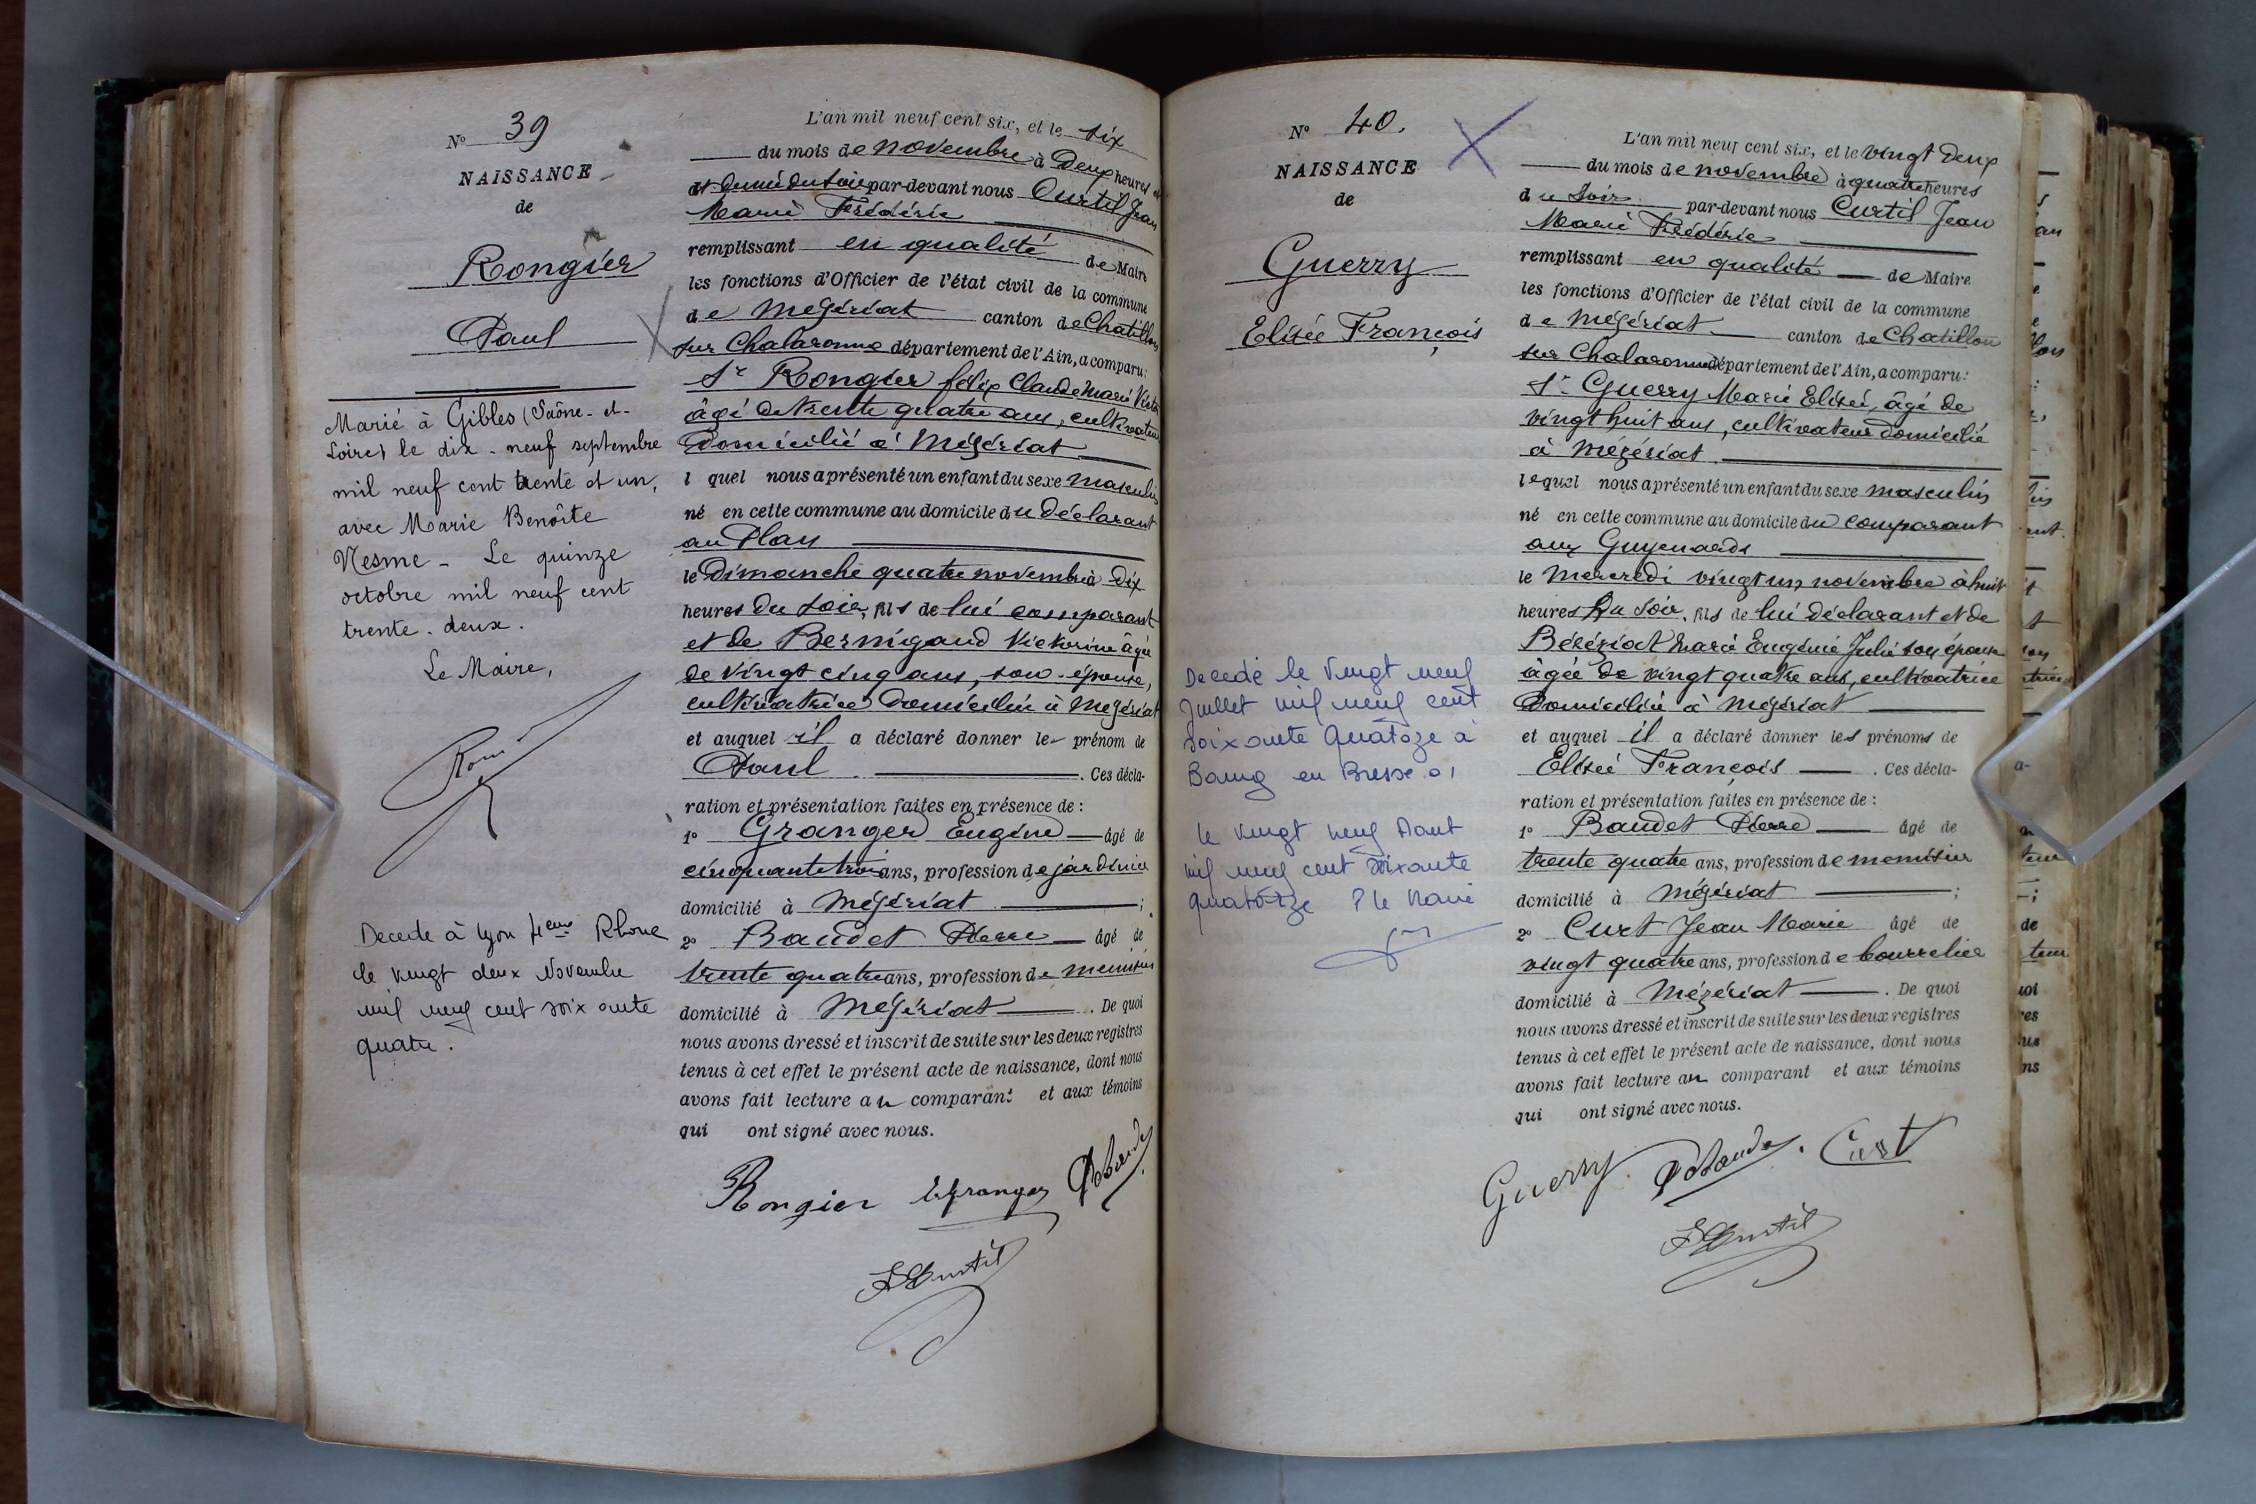 N° 39
NAISSANCE
de
Rongier
Paul
Marié à Gibles (Saône-et-
Loire) le dix-neuf septembre
mil neuf cent trente et un,
avec Marie Benoîte
Nesme - Le quinze
octobre mil neuf cent
trente-deux.
Le Maire,
Decede à Lyon 4eme Rhone
le vingt deux Novembre
mil neuf cent soixante
quatre.
L'an mil neuf cent six, et le six
du mois de novembre à Deux heures et
demi du soir par-devant nous Curtil Jean
Marie Frédéric
remplissant en qualité de Maire
les fonctions d'Officier de l'état civil de la commune
de Mézériat canton de Chatillon
sur Chalaronne département de l'Ain, a comparu:
Sr Rongier félix Claude Marie Victor
âgé de trente quatre ans, cultivateur
Domicilié à Mézériat
l quel nous a présenté un enfant du sexe masculin
né en cette commune au domicile du déclarant
au Plan
le Dimanche quatre novembre à dix
heures du soir, fils de lui comparant
et de Bernigaud Victorine âgée
de vingt cinq ans, son épouse,
cultivatrice Domiciliée à Mézériat
et auquel il a déclaré donner le prénom de
Paul. Ces décla-
ration et présentation faites en présence de :
1° Granger Eugène âgé de
cinquante trois ans, profession de jardinier
domicilié à Mézériat ;
2° Baudet Pierre âgé de
trente quatre ans, profession de menuisier
domicilié à Mézériat. De quoi
nous avons dressé et inscrit de suite sur les deux registres
tenus à cet effet le présent acte de naissance, dont nous
avons fait lecture au comparant et aux témoins
qui ont signé avec nous.
Rongier E Granger P Baudet
F Curtil
N° 40.
NAISSANCE
de
Guerry
Elisée François
Decede le vingt neuf
Juillet mil neuf cent
soixante Quatoze à
Bourg en Bresse 01
le vingt neuf Aout
mil neuf cent soixante
quatorze le Maire
L'an mil neuf cent six, et le vingt Deux
du mois de novembre à quatre heures
du soir par-devant nous Curtil Jean
Marie Frédéric
remplissant en qualité de Maire
les fonctions d'Officier de l'état civil de la commune
de Mézériat canton de Chatillon
sur Chalaronne département de l'Ain, a comparu:
Sr Guerry Marie Elisée, âgé de
vingt huit ans, cultivateur domicilié
à Mézériat.
lequel nous a présenté un enfant du sexe masculin
né en cette commune au domicile du comparant
aux Guyenards
le Mercredi vingt un novembre à huit
heures du soir, fils de lui déclarant et de
Bézériat Marie Eugénie Julie son épouse
âgée de vingt quatre ans, cultivatrice
Domiciliée à Mézériat
et auquel il a déclaré donner les prénoms de
Elisée François. Ces décla-
ration et présentation faites en présence de :
1° Baudet Pierre âgé de
trente quatre ans, profession de menuisier
domicilié à Mézériat ;
2° Curt Jean Marie âgé de
vingt quatre ans, profession de bourrelier
domicilié à Mézériat. De quoi
nous avons dressé et inscrit de suite sur les deux registres
tenus à cet effet le présent acte de naissance, dont nous
avons fait lecture au comparant et aux témoins
qui ont signé avec nous.
Guerry. P Baudet. Curt
F Curtil